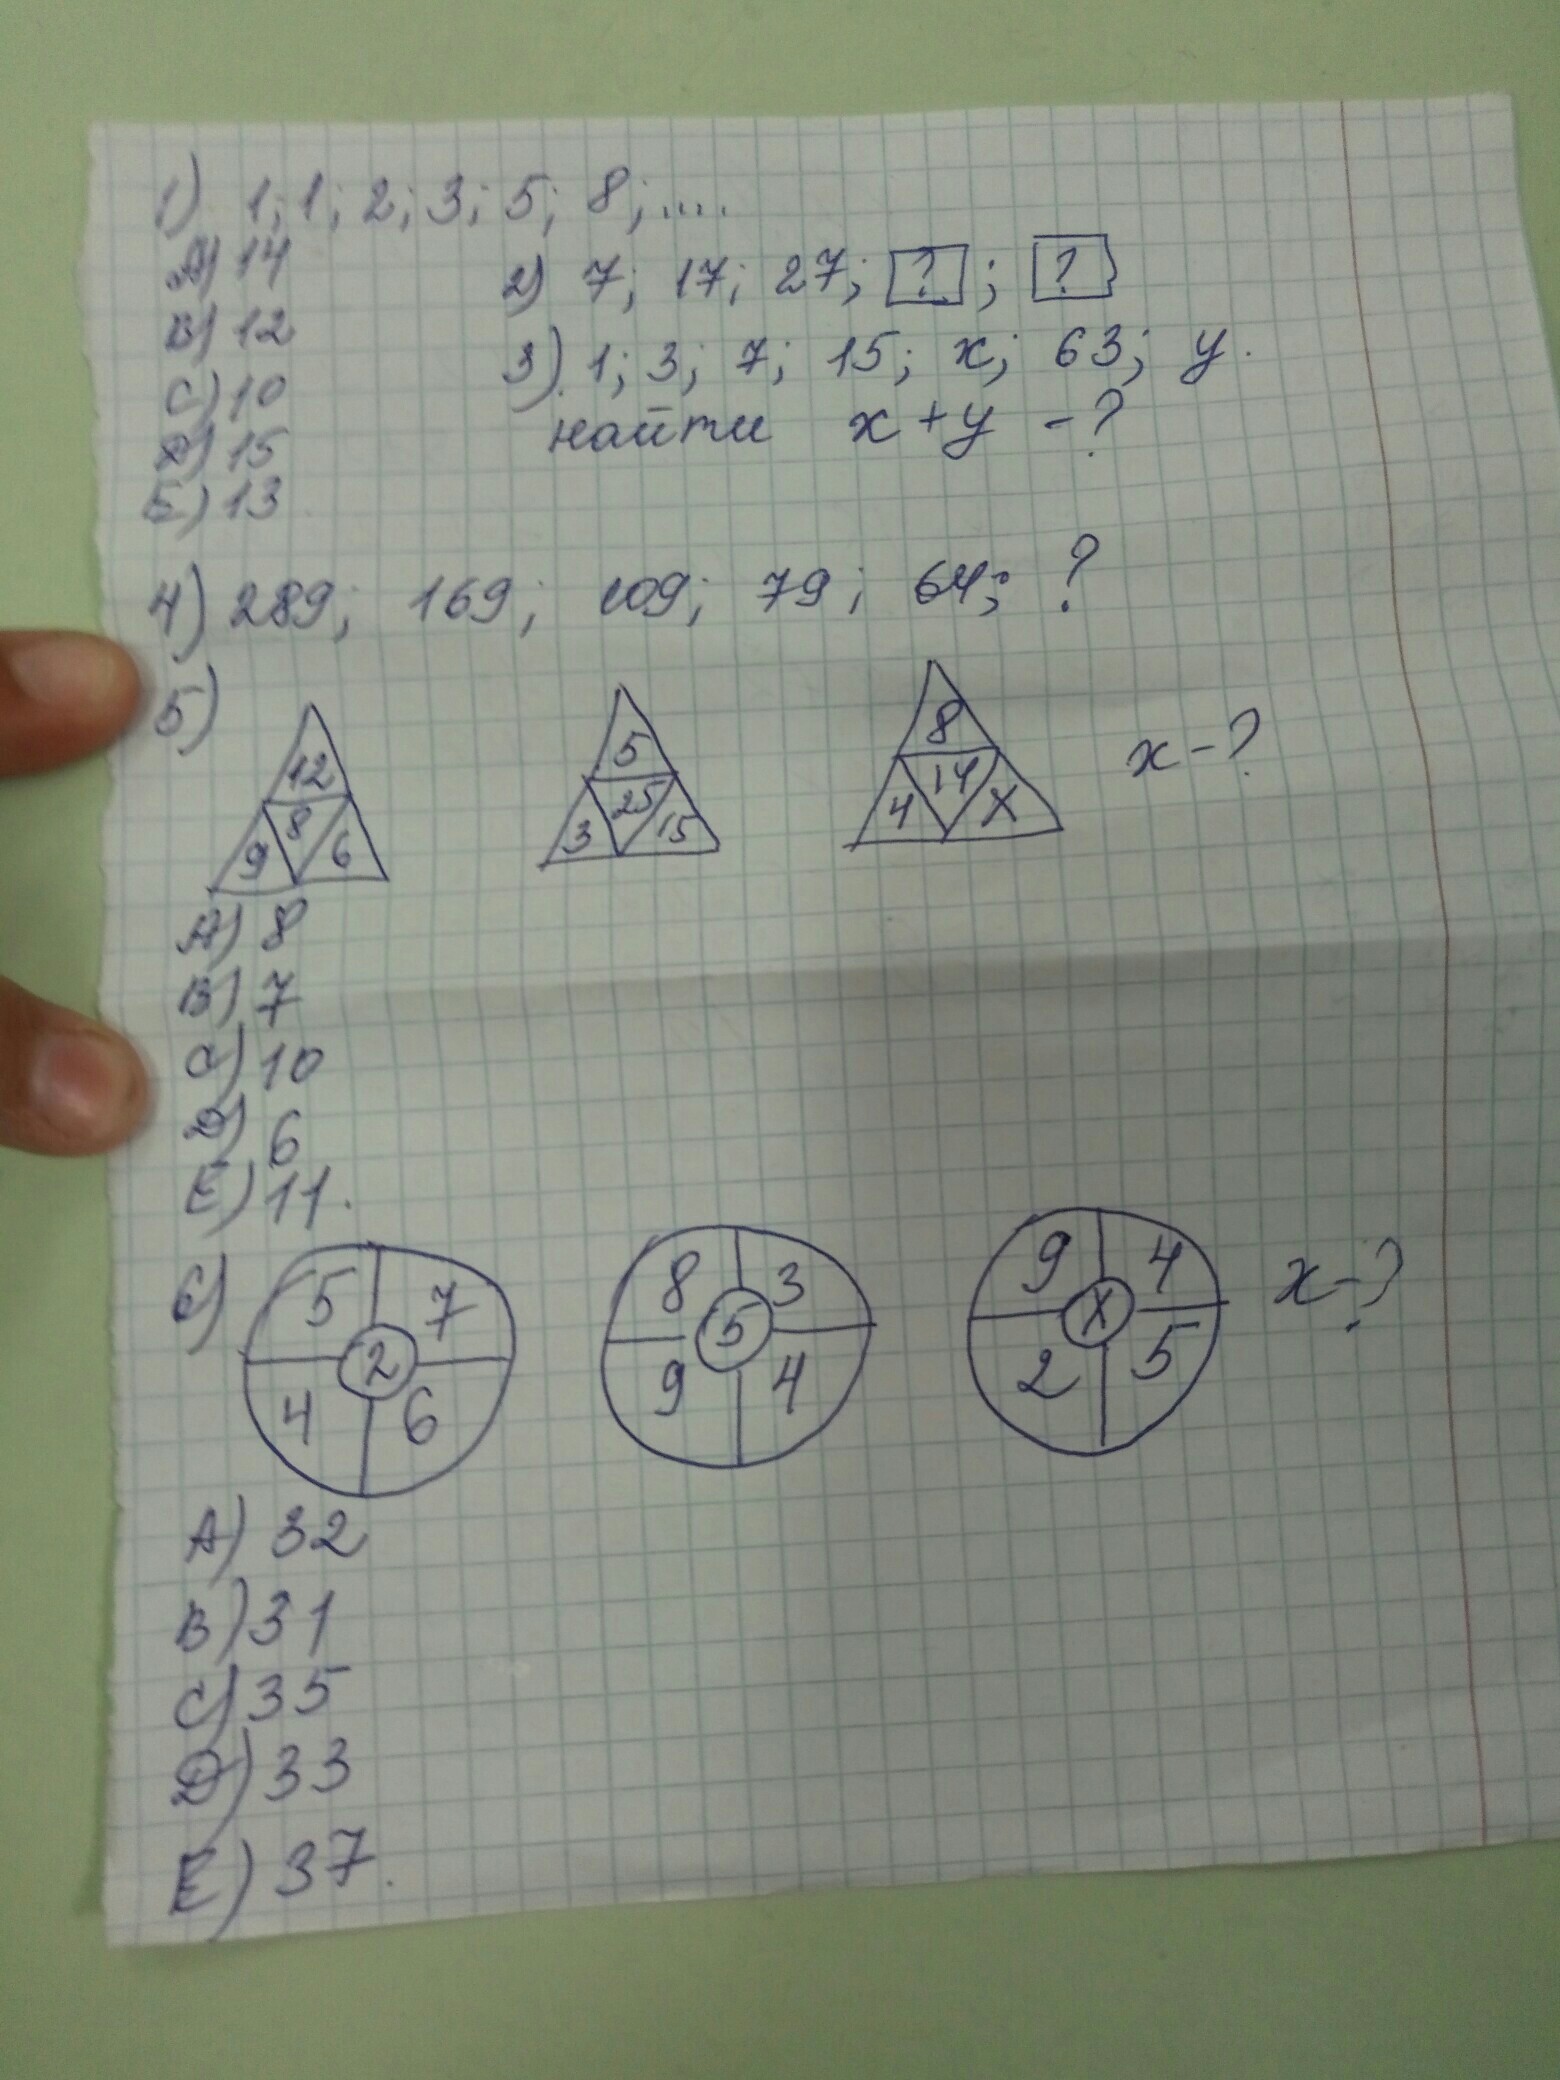 1) 1; 1; 2; 3; 5; 8; ....
A) 14
B) 12
C) 10
D) 15
E) 13
2) 7; 17; 27; ? ; ?
3) 1; 3; 7; 15; x; 63; y.
найти x + y - ?
4) 289; 169; 109; 79; 64; ?
5)
12
9 8 6
5
3 25 15
8
4 14 X
x - ?
A) 8
B) 7
C) 10
D) 6
E) 11.
6)
5 7
2
4 6
8 3
5
9 4
9 4
X
2 5
x - ?
A) 32
B) 31
C) 35
D) 33
E) 37.